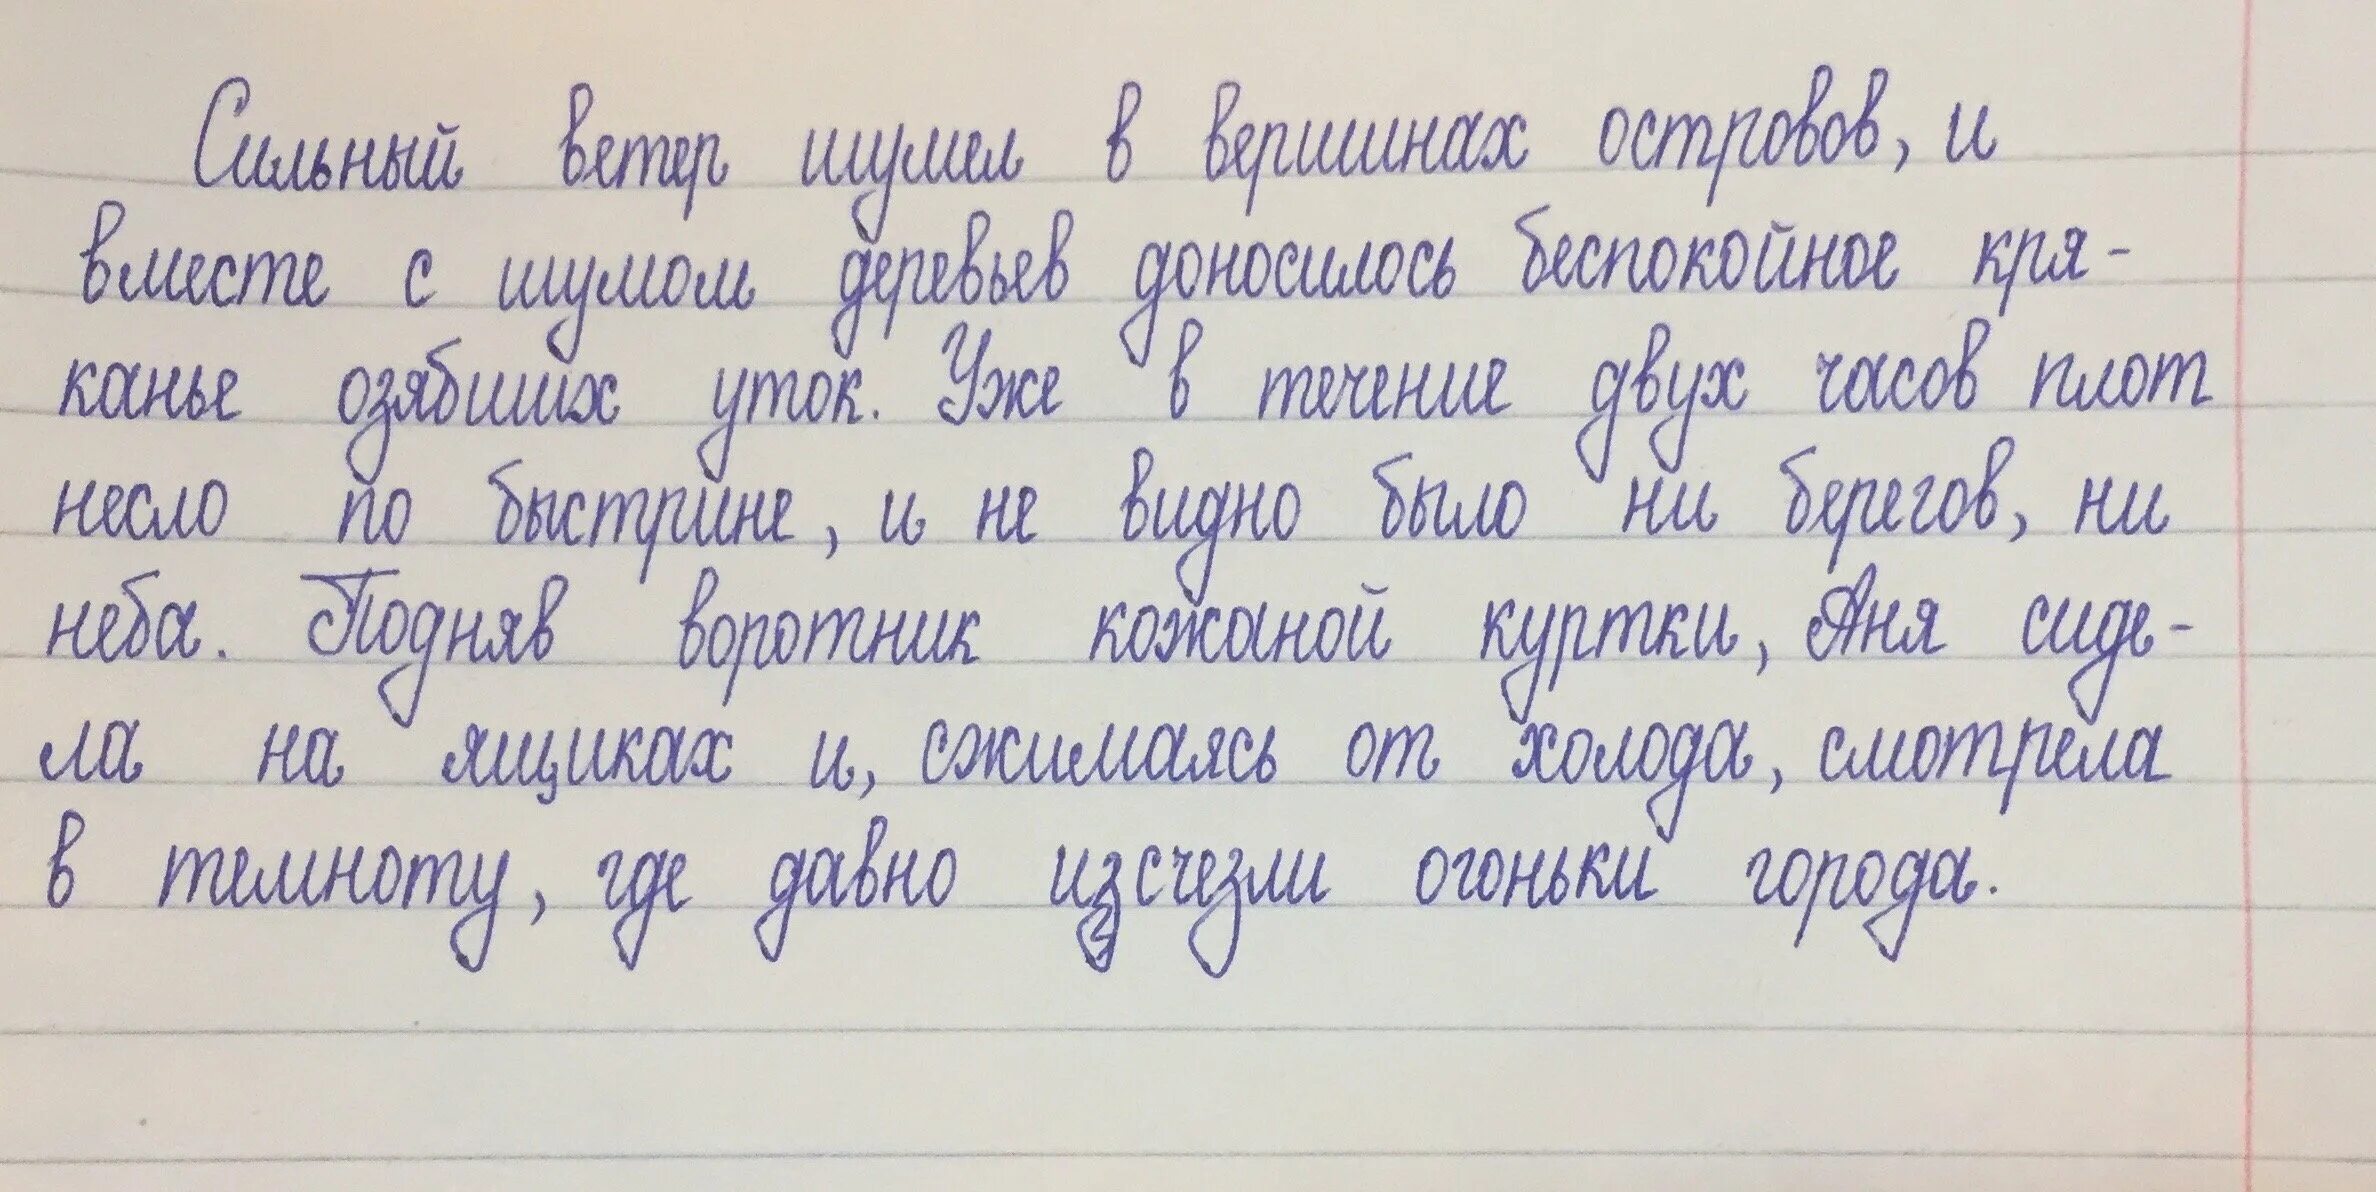 Сильный ветер шумел в вершинах островов, и
вместе с шумом деревьев доносилось беспокойное кря-
канье озябших уток. Уже в течение двух часов плот
несло по быстрине, и не видно было ни берегов, ни
неба. Подняв воротник кожаной куртки, Аня сиде-
ла на ящиках и, сжимаясь от холода, смотрела
в темноту, где давно изсчезли огоньки города.